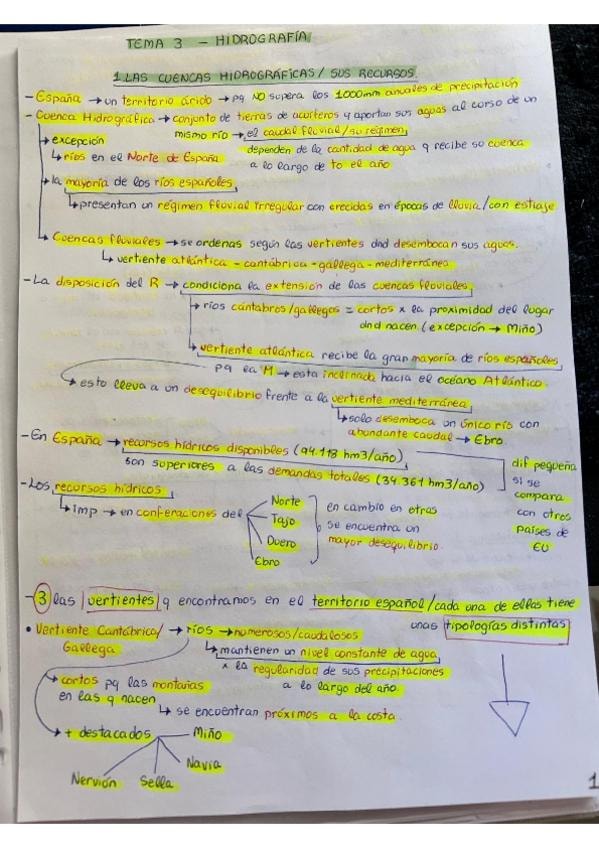 TEMA 3 - HIDROGRAFÍA
1. LAS CUENCAS HIDROGRÁFICAS / SUS RECURSOS.
- España → un territorio árido → pq NO supera los 1000mm anuales de precipitación
- Cuenca Hidrográfica → conjunto de tierras de acuíferos y aportan sus aguas al curso de un
mismo río → el caudal fluvial / su régimen,
dependen de la cantidad de agua q recibe su cuenca
a lo largo de to el año
→ excepción
↳ ríos en el Norte de España
→ la mayoría de los ríos españoles,
↳ presentan un régimen fluvial irregular con crecidas en épocas de lluvia / con estiaje
↳ Cuencas fluviales → se ordenas según las vertientes dnd desembocan sus aguas.
↳ vertiente atlántica - cantábrica - gallega - mediterránea
- La disposición del R → condiciona la extensión de las cuencas fluviales,
→ ríos cántabros/gallegos = cortos x la proximidad del lugar
dnd nacen (excepción → Miño)
↳ vertiente atlántica recibe la gran mayoría de ríos españoles
pq la M → esta inclinada hacia el océano Atlántico.
→ esto lleva a un desequilibrio frente a la vertiente mediterránea,
↳ solo desemboca un único río con
abundante caudal → Ebro
- En España → recursos hídricos disponibles (94.118 hm3/año)
son superiores a las demandas totales (34.361 hm3/año)
dif pequeña
si se
compara
con otros
países de
EU
- Los recursos hídricos
↳ imp → en confenaciones del
Norte
Tajo
Duero
Ebro
en cambio en otras
se encuentra un
mayor desequilibrio.
- 3 las vertientes q encontramos en el territorio español / cada una de ellas tiene
unas tipologías distintas
• Vertiente Cantábrica / Gallega → ríos → numerosos/caudalosos
↳ mantienen un nivel constante de agua,
x la regularidad de sus precipitaciones
a lo largo del año.
→ cortos pq las montañas
en las q nacen
↳ se encuentran próximos a la costa.
→ + destacados
Miño
Navia
Sella
Nervión
1